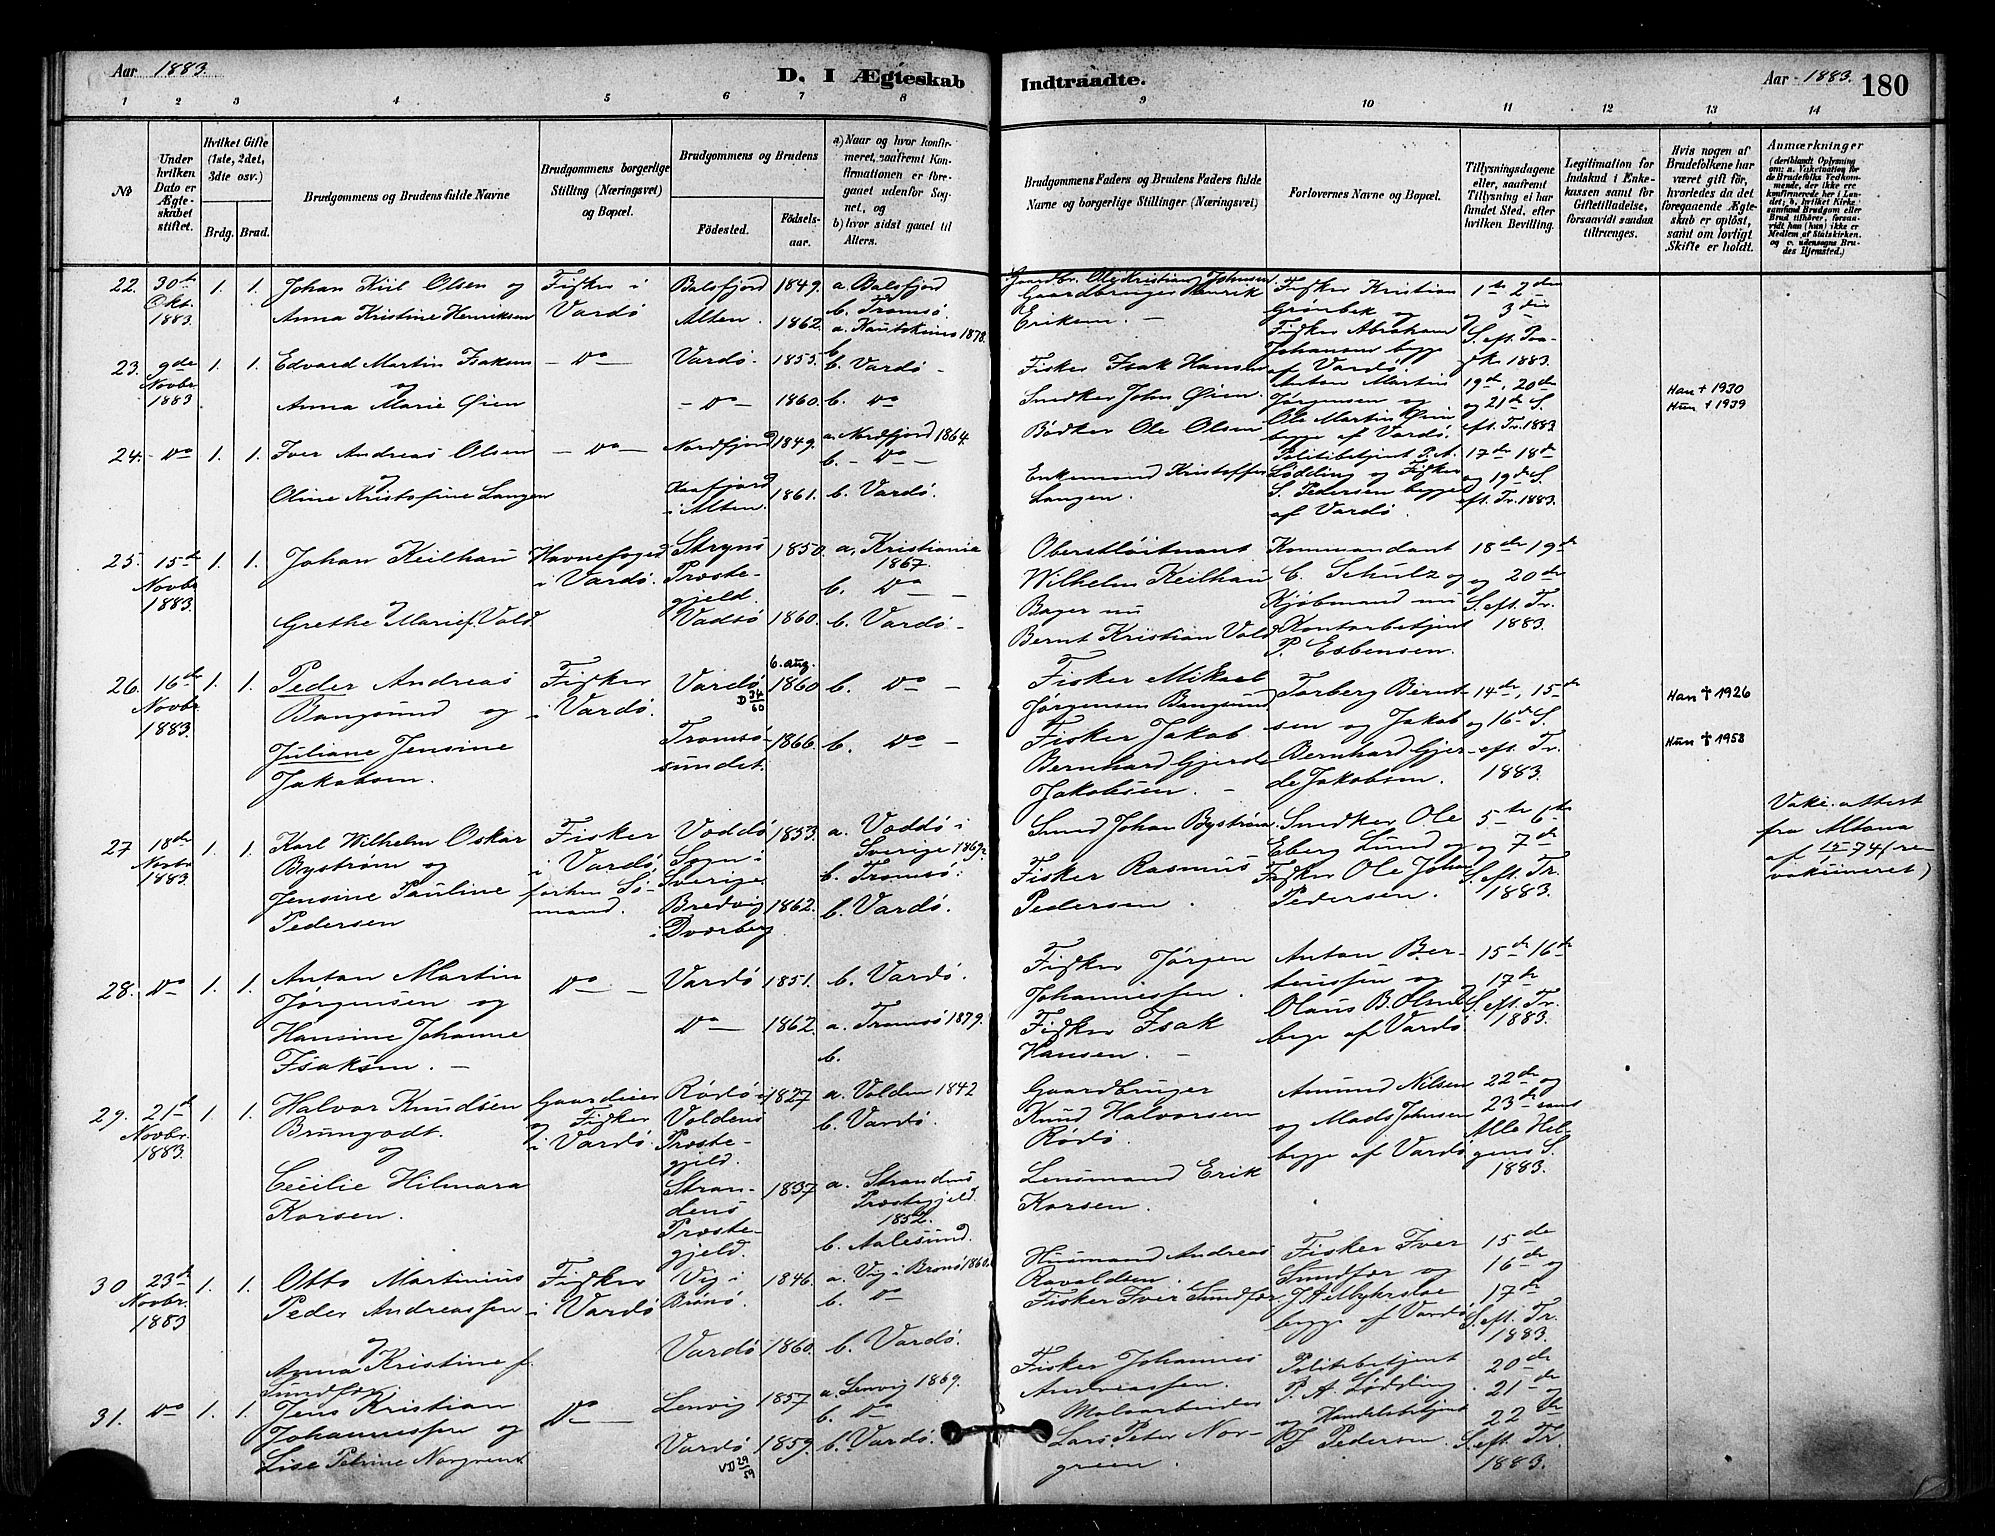 Aar 1883.
D. I Ægteskab
Indtraadte.
Aar 1883. 180
1 2 3 4 5 6 7 8 9 10 11 12 13 14
No
Under hvilken Dato er Ægteskabet stiftet.
Hvilket Gifte (1ste, 2det, 3die osv.)
Brdg. Brud.
Brudgommens og Brudens fulde Navne
Brudgommens borgerlige Stilling (Næringsvei) og Bopæl.
Brudgommens og Brudens
Fødested.
Fødselsaar.
a) Naar og hvor konfirmeret, saafremt Konfirmationen er foregaaet udenfor Sognet, og
b) hvor sidst gaaet til Alters.
Brudgommens Faders og Brudens Faders fulde Navne og borgerlige Stillinger (Næringsvei)
Forlovernes Navne og Bopæl.
Tillysningsdagene eller, saafremt Tillysning ei har fundet Sted, efter hvilken Bevilling.
Legitimation for Indskud i Enkekassen samt for Giftetilladelse, forsaavidt saadan tiltrænges.
Hvis nogen af Brudefolkene har været gift før, hvorledes da det foregaaende Ægteskab er opløst, samt om lovligt Skifte er holdt.
Anmærkninger
22. 30te Okt. 1883. 1. 1.
Johan Kiil Olsen og
Anna Kristine Henriksen
Fisker i
Vardö
Balsfjord 1849.
Alten. 1862.
a. Balsfjord
b. Tromsö.
a. Kautokeino 1878.
b.
Gaardbr. Ole Kristian Johnsen
Gaardbruger Henrik
Eriksen. —
Fisker Kristian
Grönbek og
Fisker Abraham
Johansen begge
af Vardö.
1te 2den
og 3die
S. eft. Paaske 1883.
23. 9de Novbr 1883 1. 1.
Edvard Martin Isaksen
og
Anna Marie Øien
— Do —
Vardö. 1855.
— Do — 1860.
b. Vardö —
b. Do
Fisker Isak Hansen
Snedker John Øien.
Anton Martin
Jørgensen og
Ole Martin Øien
begge af Vardö.
19de, 20de
og 21de S.
eft. Tr. 1883
Han † 1930
Hun † 1939
24. — Do 1. 1.
Iver Andreas Olsen
Oline Kristofine Langen
— Do —
Nordfjord 1849.
Kaafjord
i Alten. 1861.
a. Nordfjord 1864.
b. — Do —
b. Vardö.
Bödker Ole Olsen
Enkemand Kristoffer
Langen.
Politibetjent P. A.
Lødding og Fisker
S. Pedersen begge
af Vardö.
17de 18de
og 19de S.
eft. Tr. 1883.
25. 15de Novbr 1883. 1. 1.
Johan Keilhau
Grethe Marie f. Vold
Havnefoged
i Vardö.
Stryns
Præste-
gjeld. 1850.
Vadsö 1860.
a. Kristiania
1867.
b. Do —
b. Vardö —
Oberstløitnant
Wilhelm Keilhau
Bager nu
Bernt Kristian Vold
Kommandant
C. Schulz og
Kjöbmand nu
Kontorbetjent
P. Esbensen.
18de 19de
og 20de
S. eft. Tr.
1883.
26. 16de Novbr. 1883. 1. 1.
Peder Andreas
Bangsund og
Juliane Jensine
Jakobsen.
Fisker
i Vardö.
6. aug.
Vardö 1860
Tromsö-
sundet. 1866.
b. Do —
b. Do —
Fisker Mikael
Jørgensen Bangsund
Fisker Jakob
Bernhard Gjerde
Jakobsen. —
Torberg Bernt-
sen og Jakob
Bernhard Gjer-
de Jakobsen.
14de, 15de
og 16de S.
eft. Tr.
1883.
Han † 1926
Hun † 1958
27 18de Novbr 1883. 1. 1.
Karl Wilhelm Oskar
Byström og
Jensine Pauline
Pedersen
Fisker
i Vardö,
forhen Sö-
mand.
Voddö
Sogn i
Sverige 1853.
Bredvig
i Dverberg 1862.
a. Voddö i
Sverige 1869.
b. Tromsö.
b. Vardö.
Smed Johan Byström.
Fisker Rasmus
Pedersen.
Snedker Ole
Eberg Lund og
Fisker Ole Johan
Pedersen.
5te 6te
og 7de
S. eft. Tr.
1883.
Vakc. attest
fra Altona
af 1874 (re-
vakcineret)
28. Do 1. 1.
Anton Martin
Jørgensen og
Hansine Johanne
Isaksen. —
Do —
Vardö 1851.
Do — 1862.
b. Vardö.
a. Tromsö 1879.
b.
Fisker Jörgen
Johannessen.
Fisker Isak
Hansen. —
Anton Ber-
teussen og
Olaus B. Olsen
begge af Vardö
15de 16de
17de
S. eft. Tr.
1883.
29. 21de Novbr. 1883. 1. 1.
Halvor Knudsen
Brungodt.
og
Cecilie Hilmara
Korsen.
Gaardeier
og Fisker
i Vardö.
Rödö i
Voldens
Præste-
gjeld. 1827
Stran-
dens
Præste-
gjeld. 1837
a. Volden 1842
b. Vardö.
a. Strandens
Præstegjeld.
1852.
b. Aalesund.
Gaardbruger
Knud Halvorsen
Rödö.
Lensmand Erik
Korsen.
Amund Nilsen
og Mads Johnsen
begge af Vardö
22de og
23de samt
Alle Hel-
gens S.
1883.
30 23de Novbr. 1883 1. 1.
Otto Martinius
Peder Andreassen
Anna Kristine f.
Sundfær.
Fisker
i Vardö
Vig i
Brönö. 1846.
Vardö 1860.
a. Vig i Brönö 1860.
b. Do
b. Vardö.
Husmand Andreas
Ravaldsen.
Fisker Iver Sundfær.
Fisker Iver
Sundfær og
begge af Vardö.
15de
16de og
17de
S. eft. Tr.
1883.
31. Do 1. 1.
Jens Kristian
Johannessen og
Lise Petrine Norgreen
Do —
Lenvig 1857
Vardö 1859.
a. Lenvig 1869.
b. Do
b. Vardö.
Fisker Johannes
Andreassen.
Malerarbeider
Lars Peter Nor-
green.
Politibetjent
P. A. Lödding
og Handelsbetjent
Pedersen.
20de
21de og
22de
S. eft. Tr.
1883.